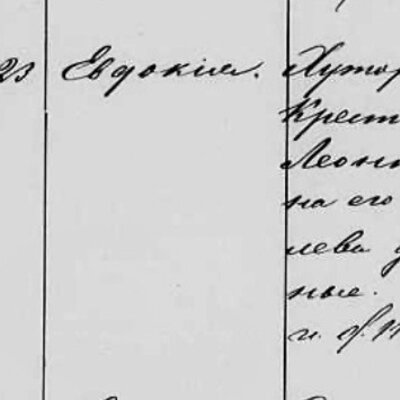 23 Евдокия. Хутор
Крест
Леон
на его
лева
ные.